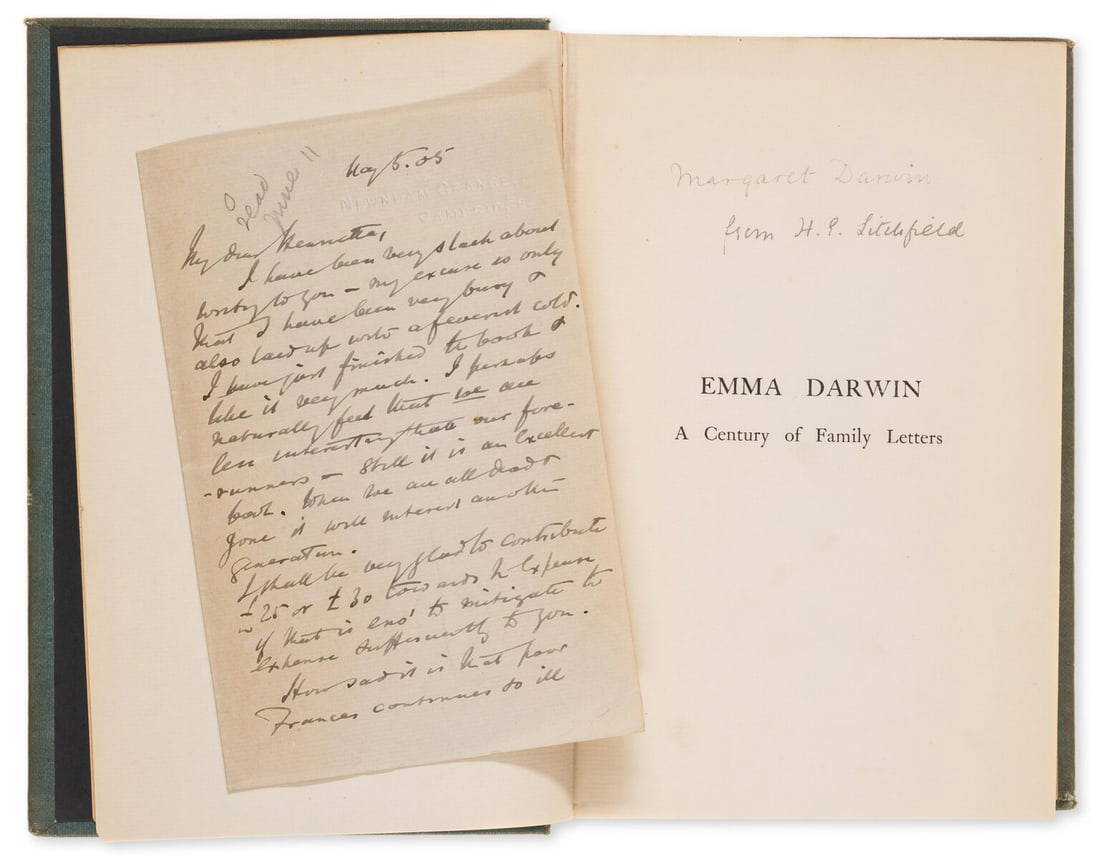 May 5. 05
Read
June 11
NEWNHAM GRANGE
CAMBRIDGE
My dear Henrietta,
I have been very slack about
writing to you – my excuse is only
that I have been very busy &
also laid up with a feverish cold.
I have just finished the book &
like it very much. I perhaps
naturally feel that we are
less interesting than our fore-
-runners – still it is an excellent
book. When we are all dead &
gone it will interest another
generation.
I shall be very glad to contribute
£25 or £30 towards the expense
if that is eno' to mitigate the
expense sufficiently to you.
How sad it is that poor
Frances continues so ill
Margaret Darwin
from H. E. Litchfield
EMMA DARWIN
A Century of Family Letters